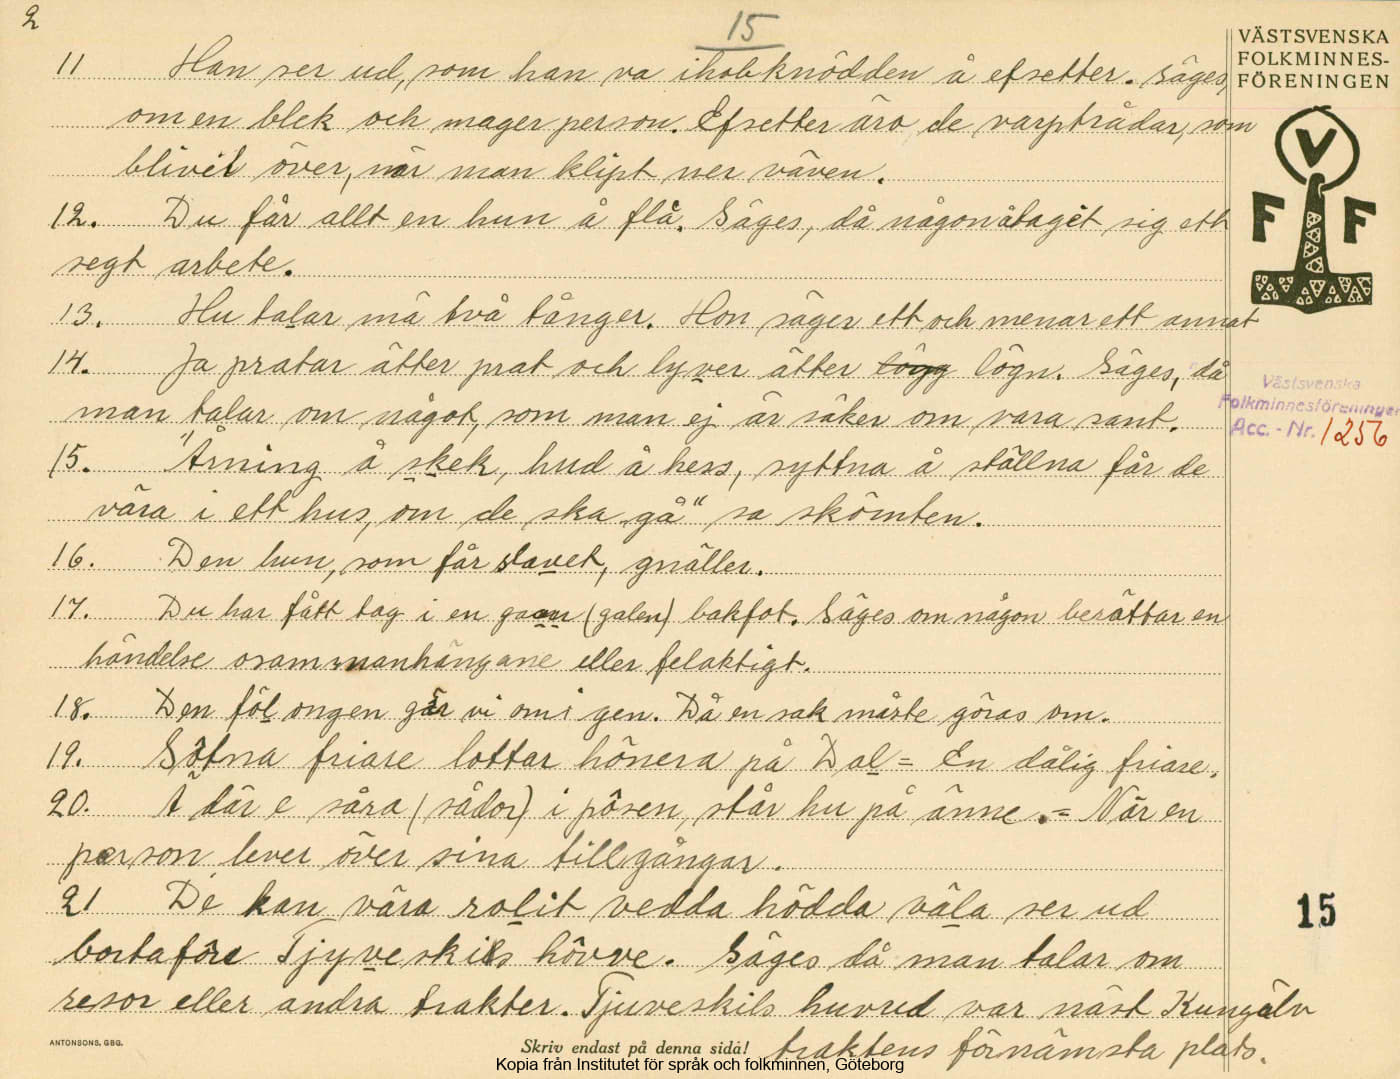 2
15
VÄSTSVENSKA
FOLKMINNES-
FÖRENINGEN
V
F F
11 Han ser ud, som han va ihobknödden å efsetter. Säges,
om en blek och mager person. Efsetter äro de varptrådar, som
blivit över, när man klipt ner väven.
12. Du får allt en hun å flå. Säges, då någon åtagit sig ett
segt arbete.
13. Hu talar må två tånger. Hon säger ett och menar ett annat
14. Ja pratar ätter prat och lyver ätter lögn. Säges, då
man talar om något, som man ej är säker om vara sant.
Västsvenska
Folkminnesföreningen
Acc. - Nr. 1256
15. "Årning å skek, hud å hess, syttna å ställna får de
våra i ett hus, om de ska gå" sa skömten.
16. Den hun, som får slavet, gnäller.
17. Du har fått tag i en (galen) bakfot. Säges om någon berättar en
händelse osammanhängane eller felaktigt.
18. Den föl ongen går vi om i gen. Då en sak måste göras om.
19. Sôtna friare lottar hönera på Dal = En dålig friare.
20. Å där e såra (sådor) i pôsen, står hu på änne. = När en
person lever över sina tillgångar.
21 De kan våra rolit vedda hödda väla ser ud
bortaföre Tjyveskils hôvve. Säges då man talar om
resor eller andra trakter. Tjuveskils huvud var näst Kungälv
traktens förnämsta plats.
15
ANTONSONS, GBG.
Skriv endast på denna sida!
Kopia från Institutet för språk och folkminnen, Göteborg